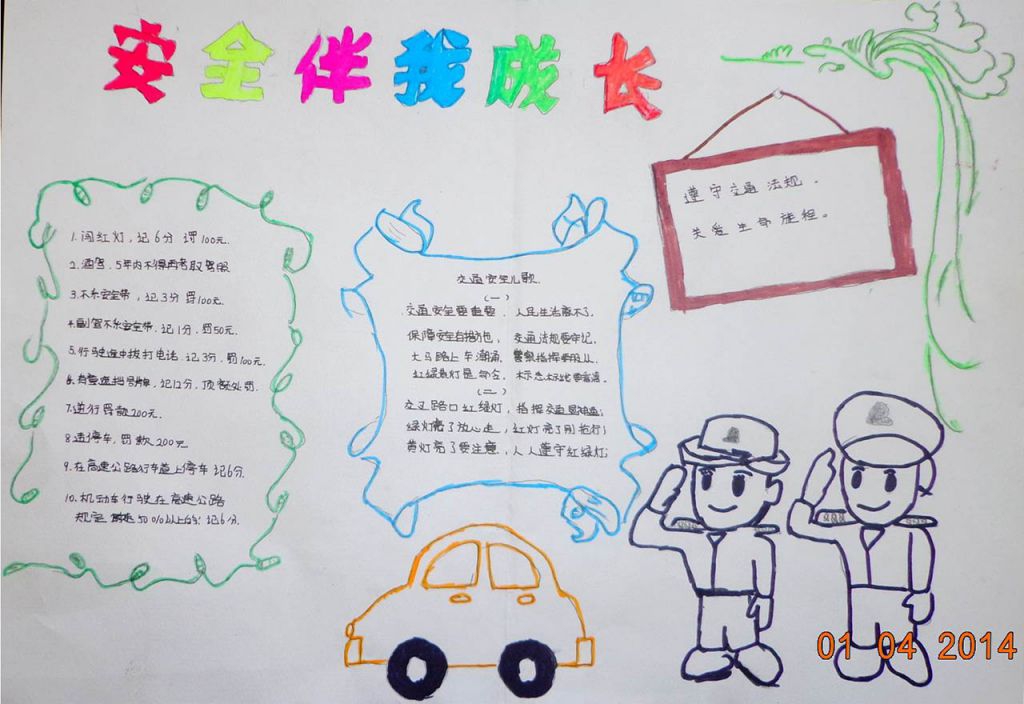 安全伴我成长
遵守交通法规.
关爱生命旅程。
1.闯红灯,记6分 罚100元.
2.酒驾,5年内不得再考取驾照
3.不系安全带,记3分罚100元.
4.副驾不系安全带,记1分,罚50元.
5.行驶途中拔打电话,记3分,罚100元.
6.有意遮挡号牌,记12分,顶格处罚.
7.逆行罚款200元.
8.违停车,罚款200元
9.在高速公路行车道上停车 记6分.
10.机动车行驶在高速公路
规定 50%以上的;记6分.
交通安全儿歌.
(一)
交通安全要重要,人民生活离不了.
保障安全各地方也,交通法规要牢记,
大马路上车潮涌,警察指挥要服从.
红绿黄灯是命令,标志标线要看清.
(二)
交叉路口红绿灯,指挥交通显神通;
绿灯亮了放心走,红灯亮了别抢行;
黄灯亮了要注意,人人遵守红绿灯;
01 04 2014